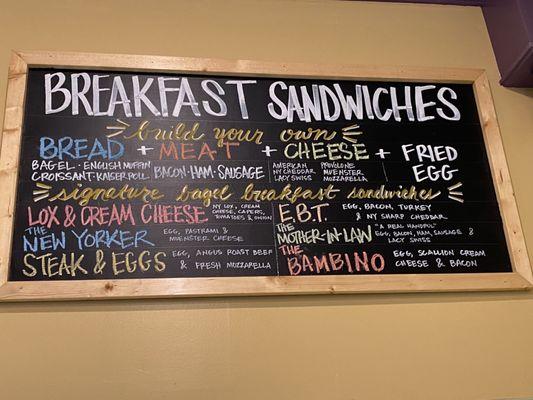 BREAKFAST SANDWICHES
build your own
BREAD + MEAT + CHEESE + FRIED EGG
BAGEL · ENGLISH MUFFIN
CROISSANT · KAISER ROLL
BACON · HAM · SAUSAGE
AMERICAN PROVOLONE
NY CHEDDAR MUENSTER
LACY SWISS MOZZARELLA
signature bagel breakfast sandwiches
LOX & CREAM CHEESE: NY LOX, CREAM
CHEESE, CAPERS,
TOMATOES & ONION
THE NEW YORKER EGG, PASTRAMI &
MUENSTER CHEESE
STEAK & EGGS EGG, ANGUS ROAST BEEF
& FRESH MOZZARELLA
E.B.T. EGG, BACON, TURKEY
& NY SHARP CHEDDAR
THE MOTHER-IN-LAW "A REAL HANDFUL"
EGG, BACON, HAM, SAUSAGE &
LACY SWISS
THE BAMBINO EGG, SCALLION CREAM
CHEESE & BACON